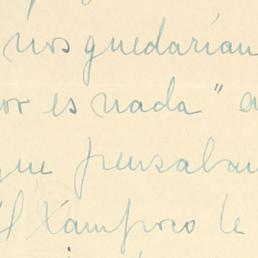 nos quedarían
or es nada" a
que pensaban
él Xampoco le